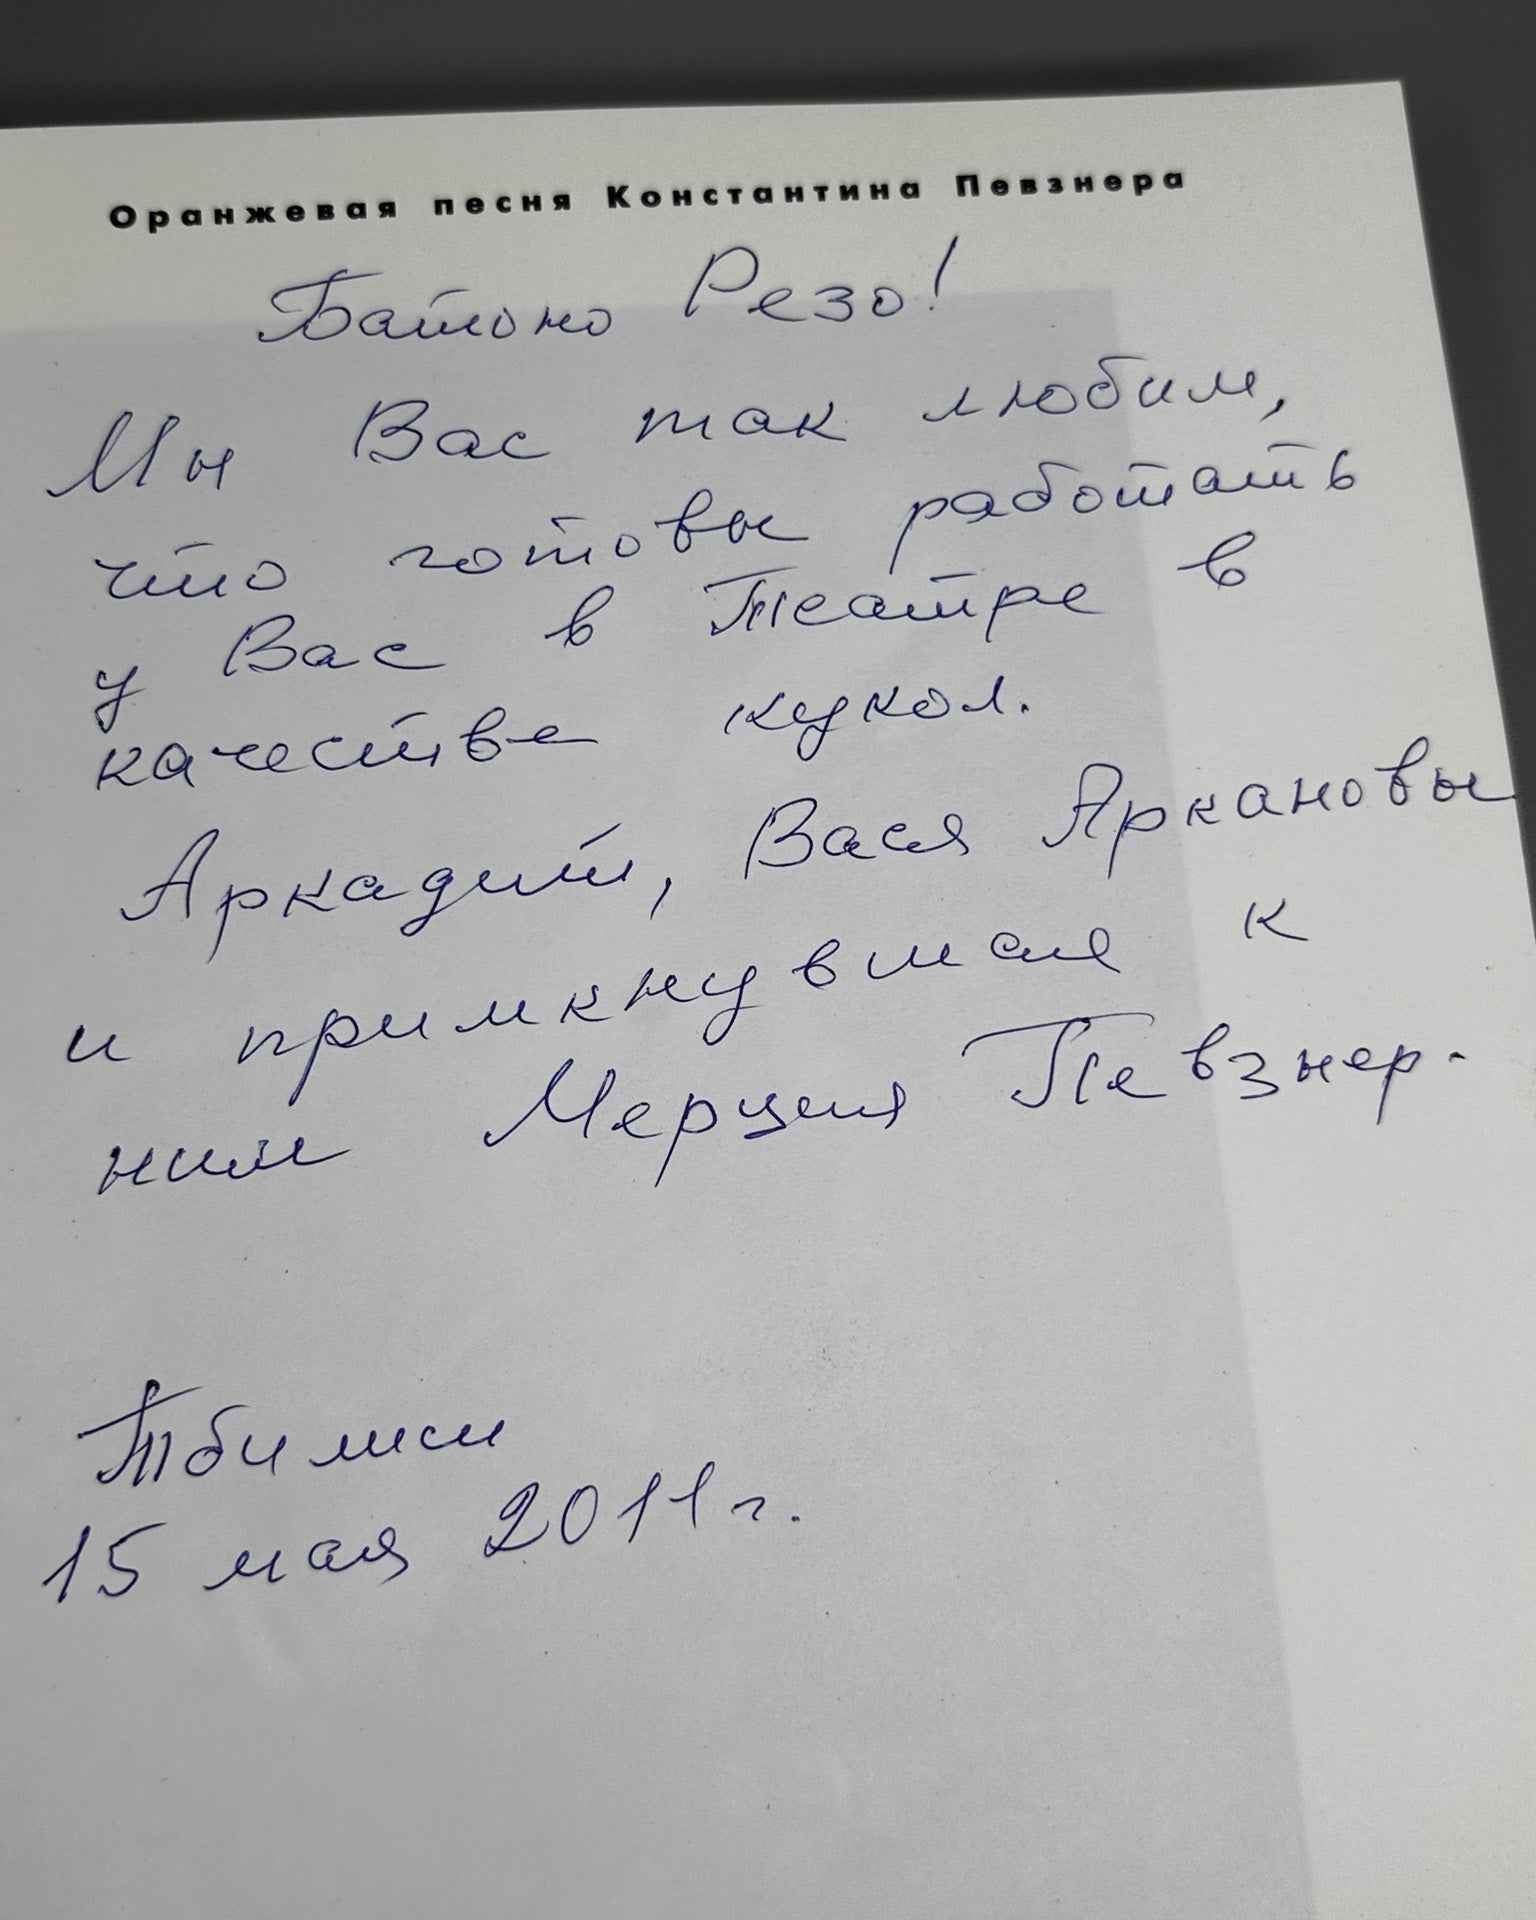 Оранжевая песня Константина Певзнера
Батоно Резо!
Мы Вас так любим,
что готовы работать
у Вас в Театре в
качестве кукол.
Аркадий, Вася Аркановы
и примкнувшая к
ним Мерция Певзнер.
Тбилиси
15 мая 2011 г.